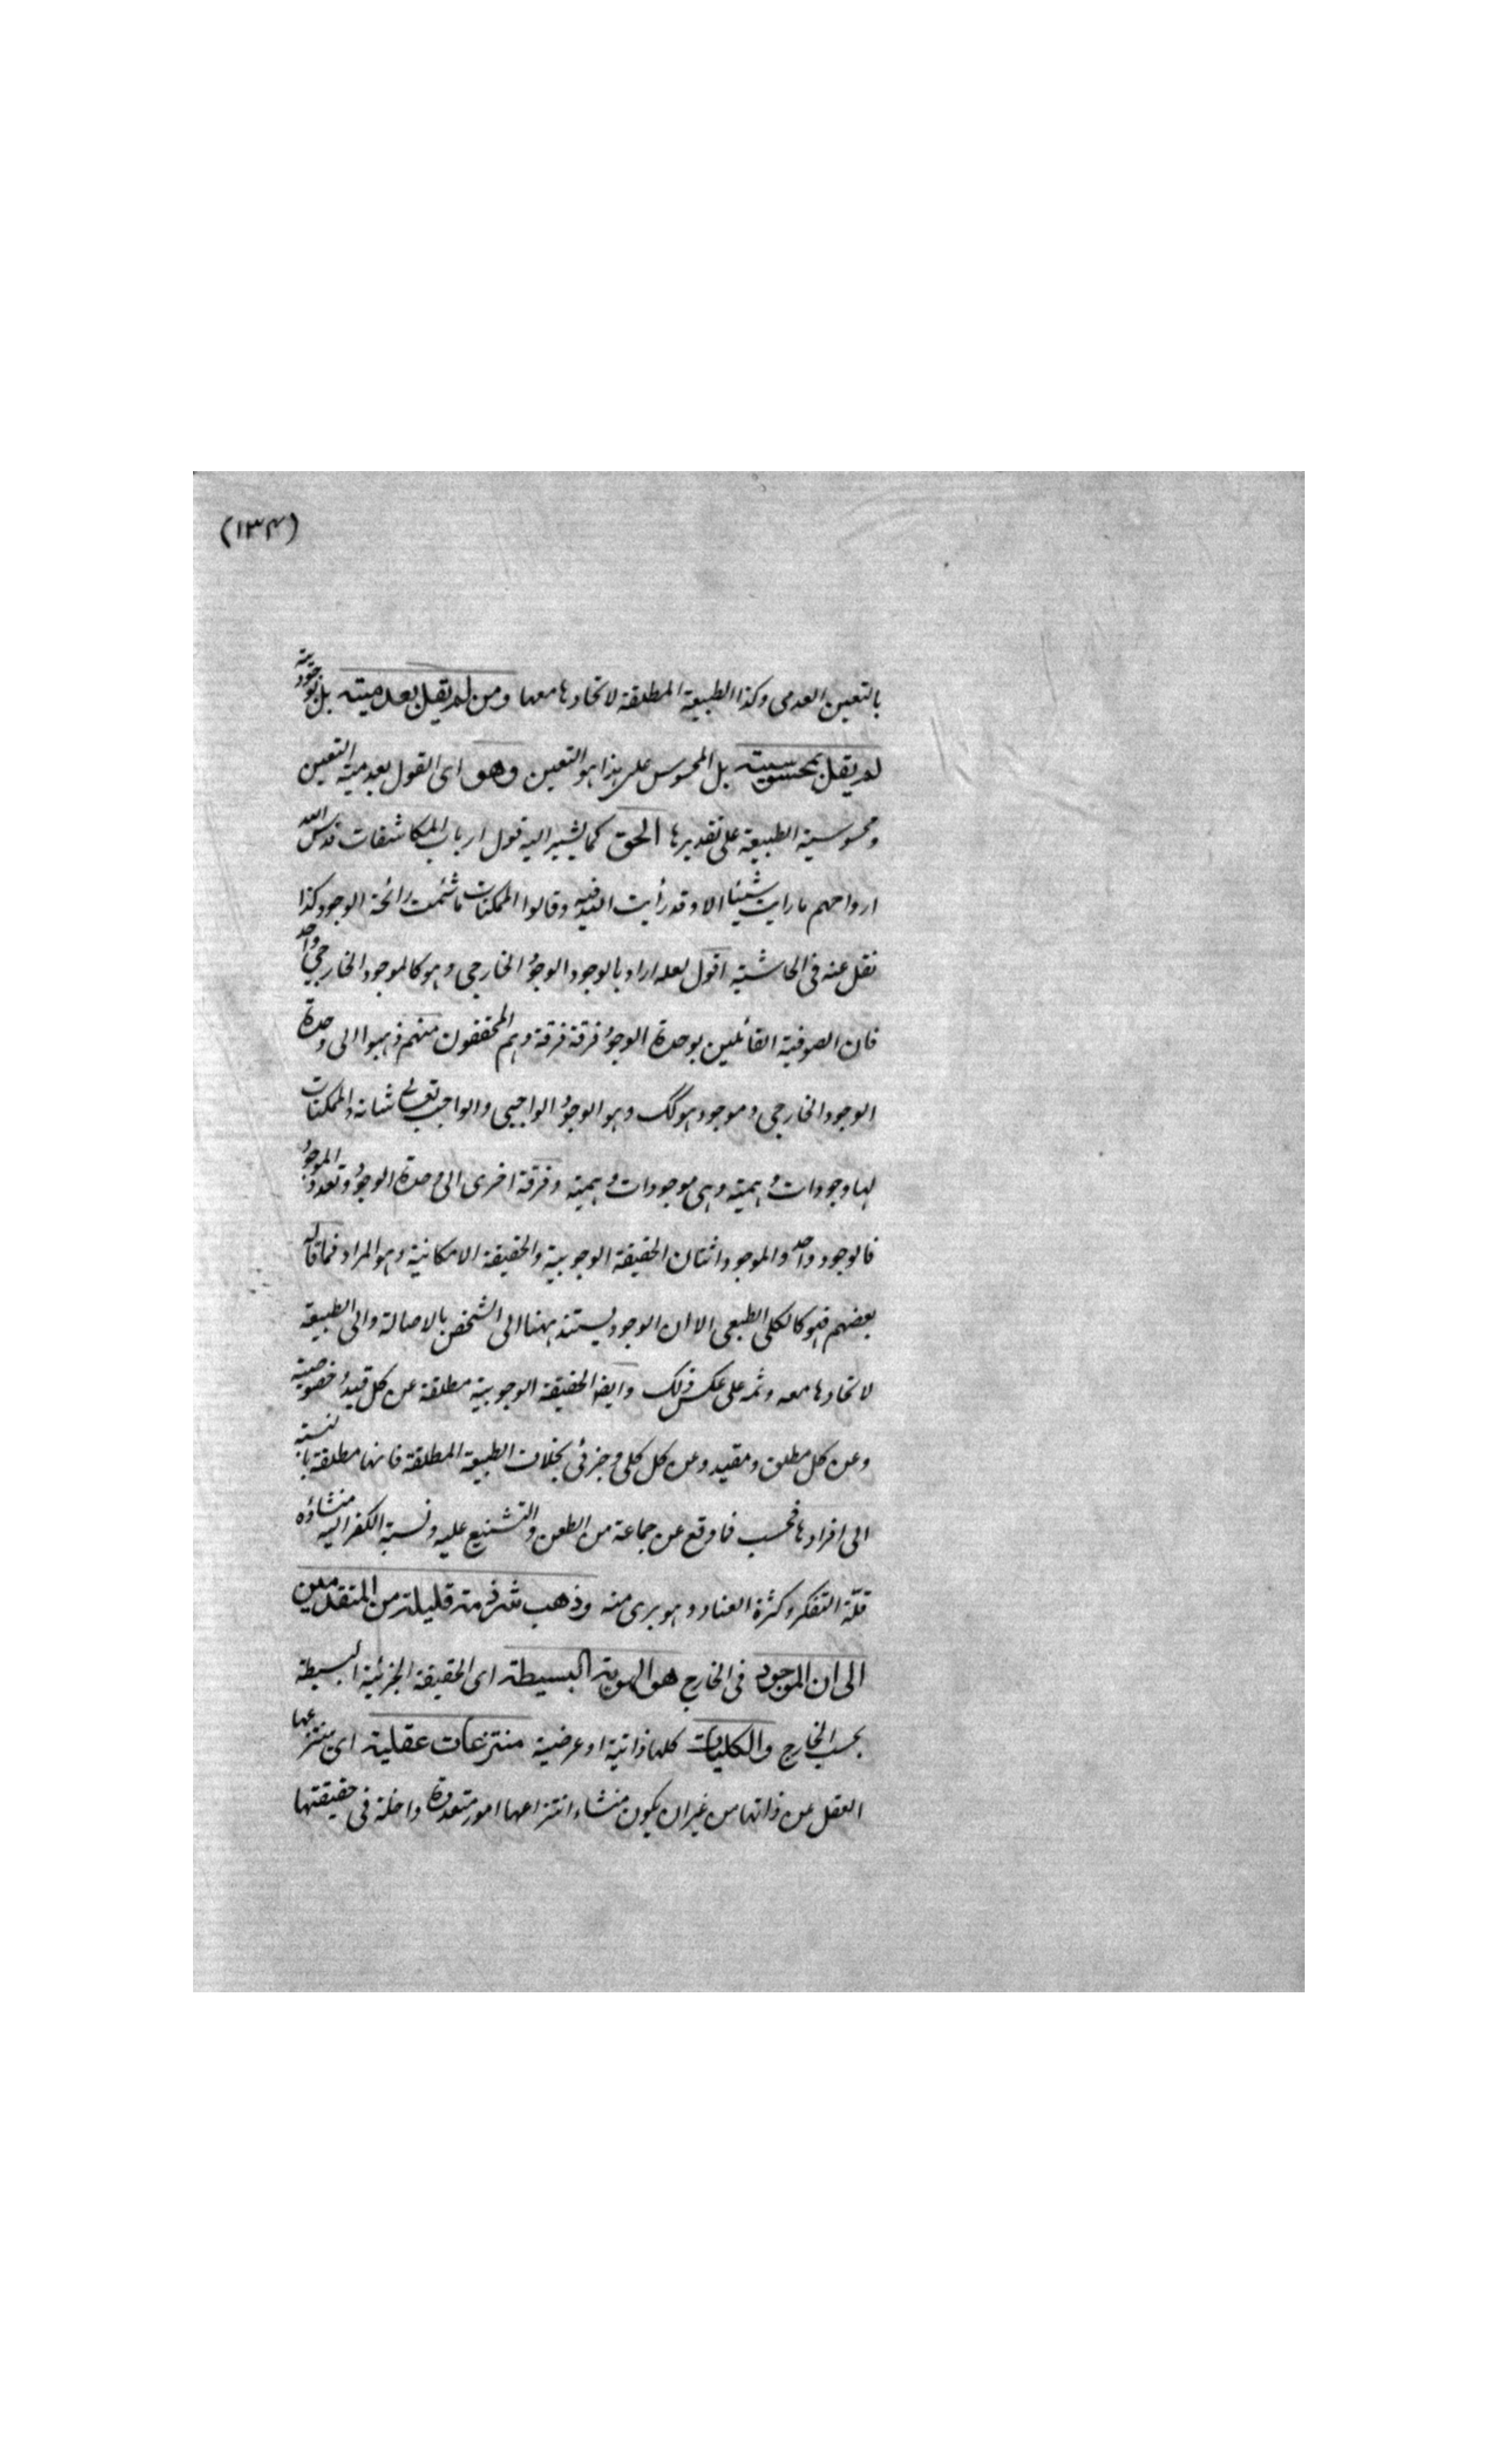 (۱۳۴)
بالتعين العدمى وكذا الطبيعة المطلقة لاتحادها معها ومن لم يقل بعدميته بل بوجوديته
لم يقل بمحسوسيته بل المحسوس على هذا هو التعين وهو اى القول بعدمية التعين
ومحسوسية الطبيعة على تقديرها الحق كما يشير اليه قول ارباب المكاشفات قدس الله
ارواحهم ما رايت شيئا الا وقد رأيت الله فيه وقالوا الممكنات ما شمت رائحة الوجود كذا
نقل عنه فى الحاشية اقول لعله اراد بالوجود الوجود الخارجى وهو كالموجود الخارجى واحد
فان الصوفية القائلين بوحدة الوجود فرقة فرقة وهم المحققون منهم ذهبوا الى وحدة
الوجود الخارجى وموجود هو لك وهو الوجود الواجبى والواجب تعالى شانه والممكنات
لها وجودات وهمية وهى موجودات وهمية وفرقة اخرى الى وحدة الوجود وتعدد الموجود
فالوجود واحد والموجود اثنان الحقيقة الوجوبية والحقيقة الامكانية وهو المراد فما قاله
بعضهم فهو كالكلى الطبعى الا ان الوجود يستند ههنا الى الشخص بالاصالة والى الطبيعة
لاتحادها معه وثمه على عكس ذلك وايضا الحقيقة الوجوبية مطلقة عن كل قيد وخصوصية
وعن كل مطلق ومقيد وعن كل كلى وجزئى بخلاف الطبيعة المطلقة فانها مطلقة بالنسبة
الى افرادها فحسب فما وقع عن جماعة من الطعن والتشنيع عليه ونسبة الكفر اليه منشاؤه
قلة التفكر وكثرة العناد وهو برى منه وذهب شرذمة قليلة من المتقدمين
الى ان الموجود فى الخارج هو الهوية البسيطة اى الحقيقة الجزئية البسيطة
بحسب الخارج والكليات كلها ذاتية او عرضية منتزعات عقلية اى ينتزعها
العقل عن ذاتها من غير ان يكون منشاء انتزاعها امور متعددة داخلة فى حقيقتها